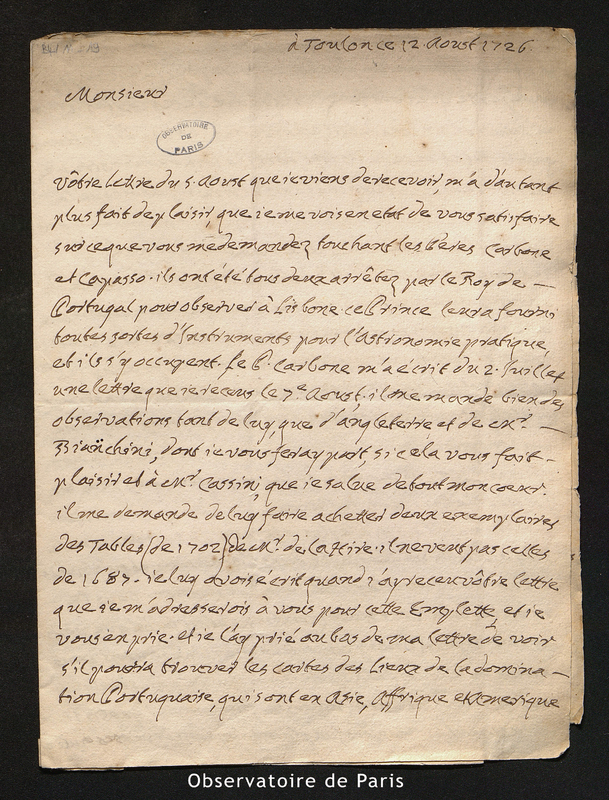 à Toulon ce 12. Aoust 1726.
Monsieur
OBSERVATOIRE
DE
PARIS
vôtre lettre du 5. Aoust que ie viens de recevoir, m'a d'autant
plus fait de plaisir, que ie me vois en etat de vous satisfaire
sur ce que vous me demandez touchant les Peres Carbone
et Capasso. ils ont été tous deux arrêtez par le Roy de —
Portugal pour observer à Lisbone. ce Prince leur a fourni
toutes sortes d'Instruments pour l'Astronomie pratique,
et ils s'y occupent. Le P. Carbone m'a écrit du 2. Juillet
une lettre que ie receus le 7e Aoust. il me mande bien des
observations tant de luy, que d'angleterre et de Mr. —
Bianchini, dont ie vous feray part, si cela vous fait —
plaisir et à Mr. Cassini, que ie salue de tout mon coeur.
il me demande de luy faire achetter deux exemplaires
des Tables (de 1702) de Mr. de la Hire. il ne veut pas celles
de 1687. ie luy avois écrit quand i'ay receu vôtre lettre
que ie m'adresserois à vous pour cette Emplette, et ie
vous en prie. et ie l'ay prié au bas de ma lettre de voir
s'il pourra trouver les cartes des Lieux de la domina—
tion Portuguaise, qui sont en Asie, Affrique et Amerique
Observatoire de Paris